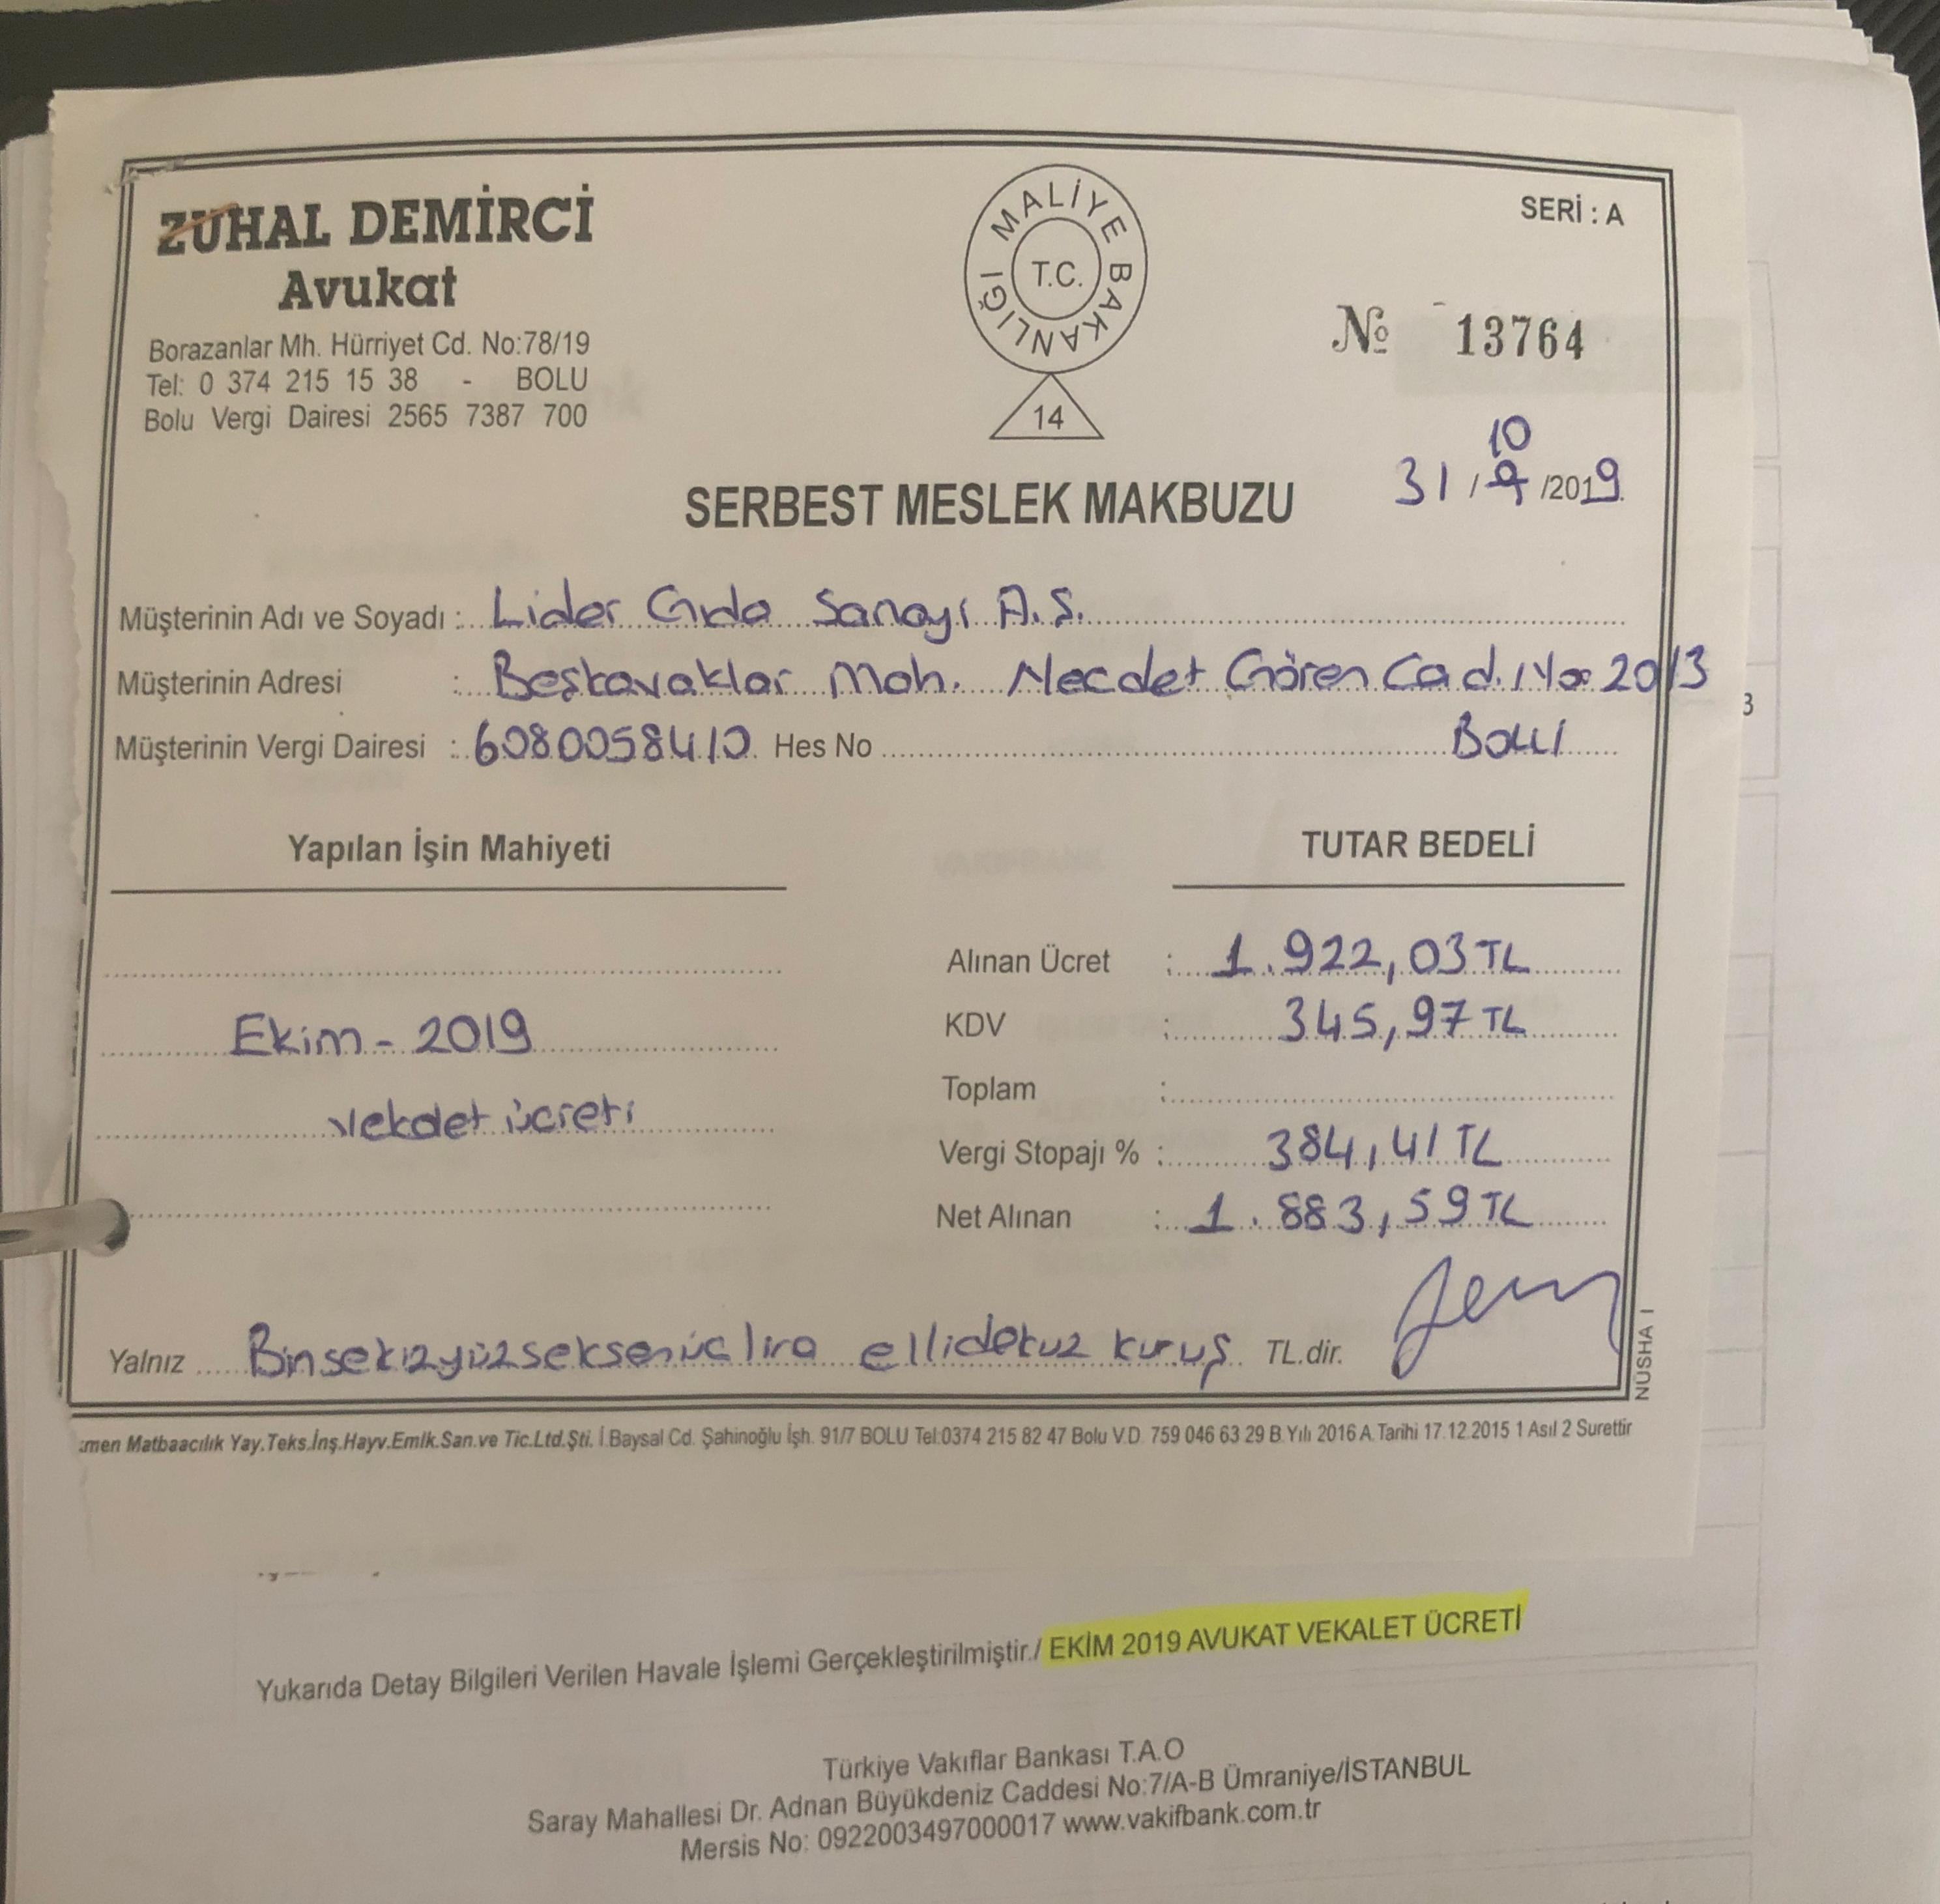 ZUHAL DEMİRCİ
Avukat
Borazanlar Mh. Hürriyet Cd. No:78/19
Tel: 0 374 215 15 38 - BOLU
Bolu Vergi Dairesi 2565 7387 700
MALİYE BAKANLIĞI
T.C.
14
SERİ : A
№ 13764
10
31/9/2019
SERBEST MESLEK MAKBUZU
Müşterinin Adı ve Soyadı : Lider Gıda Sanayi A.Ş.
Müşterinin Adresi : Beşkavaklar Mah. Necdet Gören Cad. No: 20/3
3
Müşterinin Vergi Dairesi : 6080058410 Hes No Bolu
Yapılan İşin Mahiyeti TUTAR BEDELİ
Alınan Ücret : 1.922,03 TL
Ekim - 2019 KDV : 345,97 TL
Toplam :
vekalet ücreti Vergi Stopajı % : 384,41 TL
Net Alınan : 1.883,59 TL
Yalnız Binsekizyüzseksenüçlira ellidokuz kuruş TL.dir.
NUSHA I
men Matbaacılık Yay.Teks.İnş.Hayv.Emlk.San.ve Tic.Ltd.Şti. İ.Baysal Cd. Şahinoğlu İşh. 91/7 BOLU Tel:0374 215 82 47 Bolu V.D. 759 046 63 29 B.Yılı 2016 A.Tarihi 17.12.2015 1 Asıl 2 Surettir
Yukarıda Detay Bilgileri Verilen Havale İşlemi Gerçekleştirilmiştir./ EKİM 2019 AVUKAT VEKALET ÜCRETİ
Türkiye Vakıflar Bankası T.A.O
Saray Mahallesi Dr. Adnan Büyükdeniz Caddesi No:7/A-B Ümraniye/İSTANBUL
Mersis No: 0922003497000017 www.vakifbank.com.tr